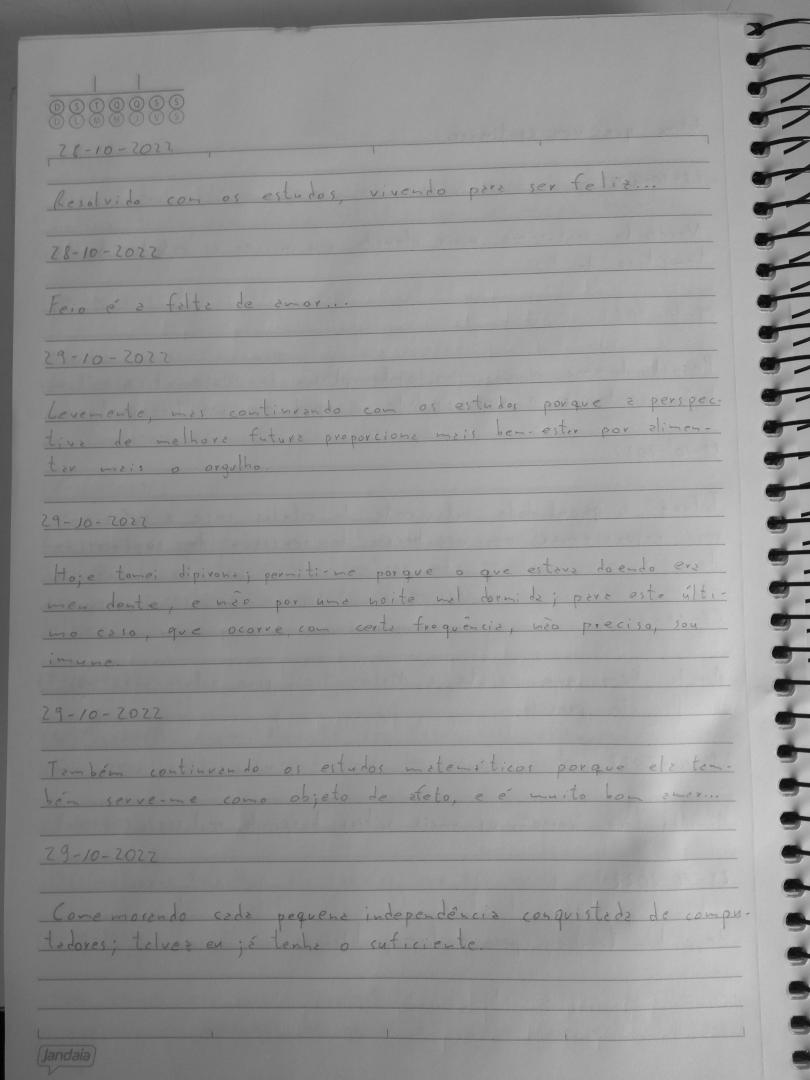 D S T Q Q S S
D L M M J V S
28-10-2022
Resolvido com os estudos, vivendo para ser feliz...
28-10-2022
Feio é a falta de amor...
29-10-2022
Levemente, mas continuando com os estudos porque a perspec-
tiva de melhora futura proporciona mais bem-estar por alimen-
tar mais o orgulho.
29-10-2022
Hoje tomei dipirona; permiti-me porque o que estava doendo era
meu dente, e não por uma noite mal dormida; para este últi-
mo caso, que ocorre com certa frequência, não preciso, sou
imune.
29-10-2022
Também continuando os estudos matemáticos porque ela tam-
bém serve-me como objeto de afeto, e é muito bom amar...
29-10-2022
Comemorando cada pequena independência conquistada de compu-
tadores; talvez eu já tenha o suficiente.
Jandaia